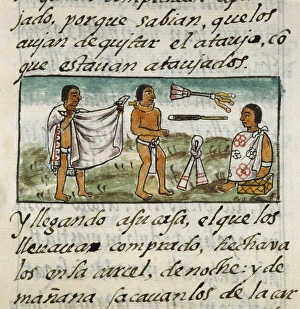 jado, porque sabian, que los
auian de quitar el atauio, cõ
que estauan atauiados.
Y llegando a su casa, el que los
lleuaua comprado, hechaua
los en la carcel, de noche: y de
mañana sacauanlos de la car